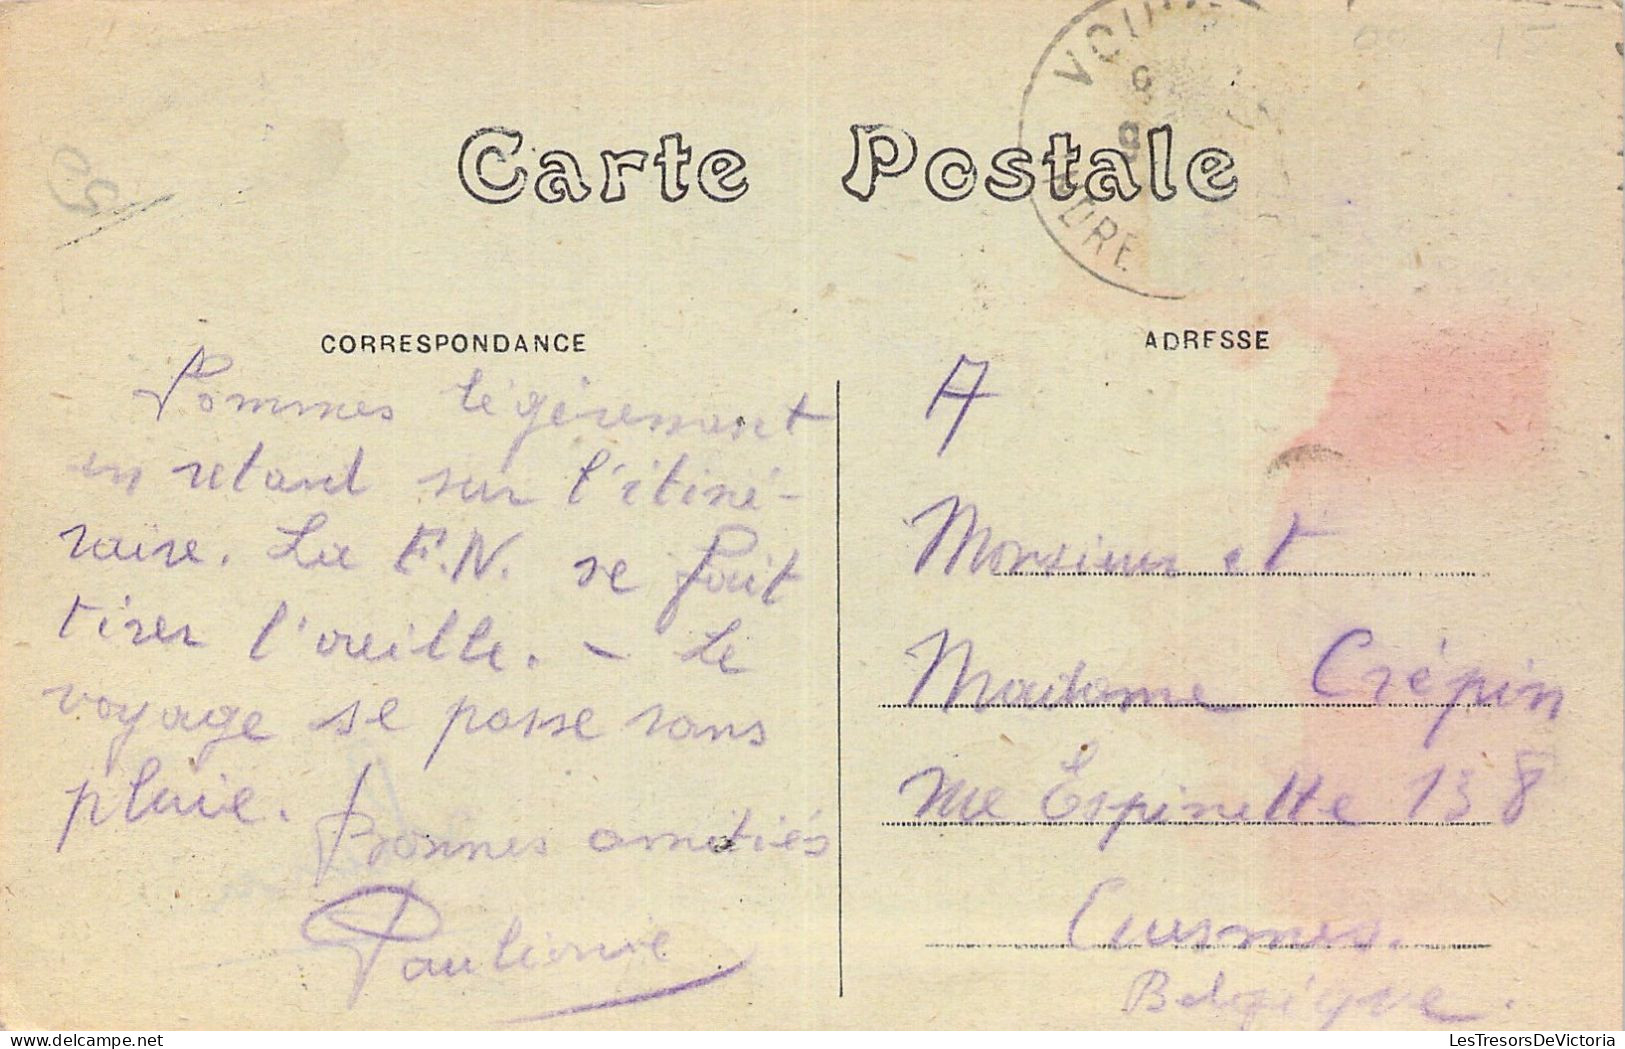 Carte Postale
CORRESPONDANCE
Sommes légèrement
en retard sur l'itiné-
raire. La F.N. se fait
tirer l'oreille. – Le
voyage se passe sans
pluie.
Bonnes amitiés
ADRESSE
A
Monsieur et
Madame Crépin
rue Espinette 138
Cuesmes.
Belgique.
LesTresorsDeVictoria